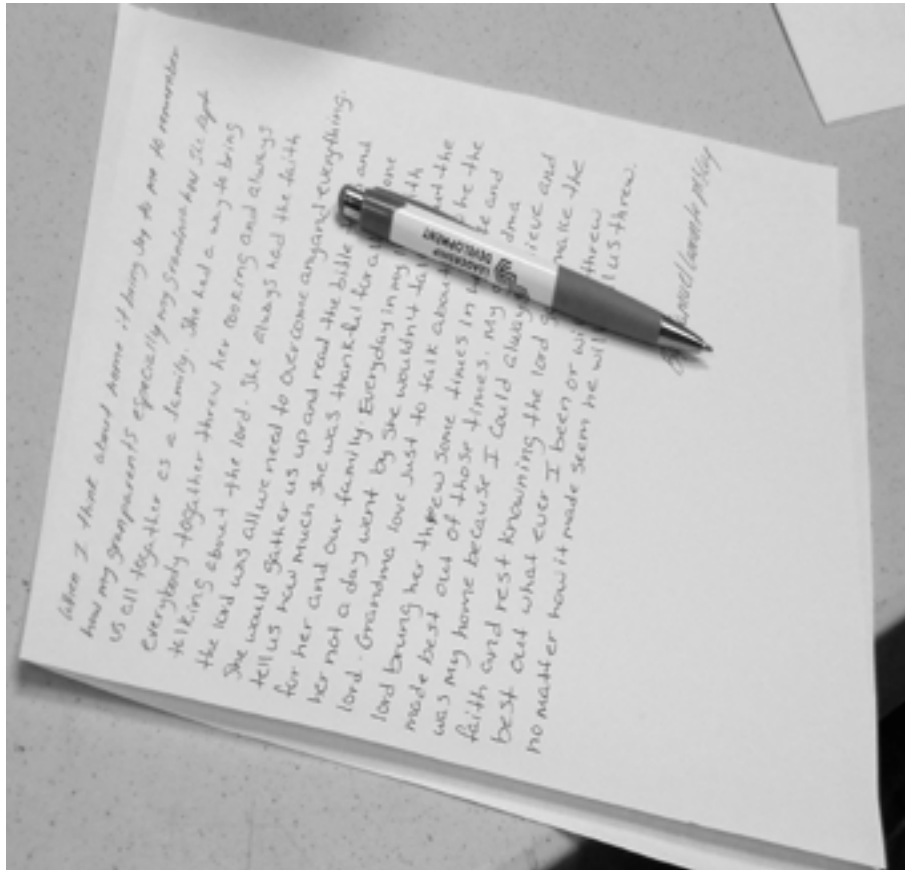 When I think about home it bring joy to me to remember
how my granparents especially my grandma how she kept
us all together as a family. She had a way to bring
everybody together threw her cooking and always
talking about the lord. She always had the faith
the lord was all we need to overcome anyand everything.
She would gather us up and read the bible and
tell us how much she was thankful for all one
for her and our family. Everyday in my
her not a day went by she wouldn't
lord. Grandma love just to talk about the
lord brung her threw some times in he the
made best out of those times. My and
was my home because I could always
faith and rest knowing the lord make the
best out what ever I been or threw
no matter how it made seem he will us threw.
LEADERSHIP
DEVELOPMENT